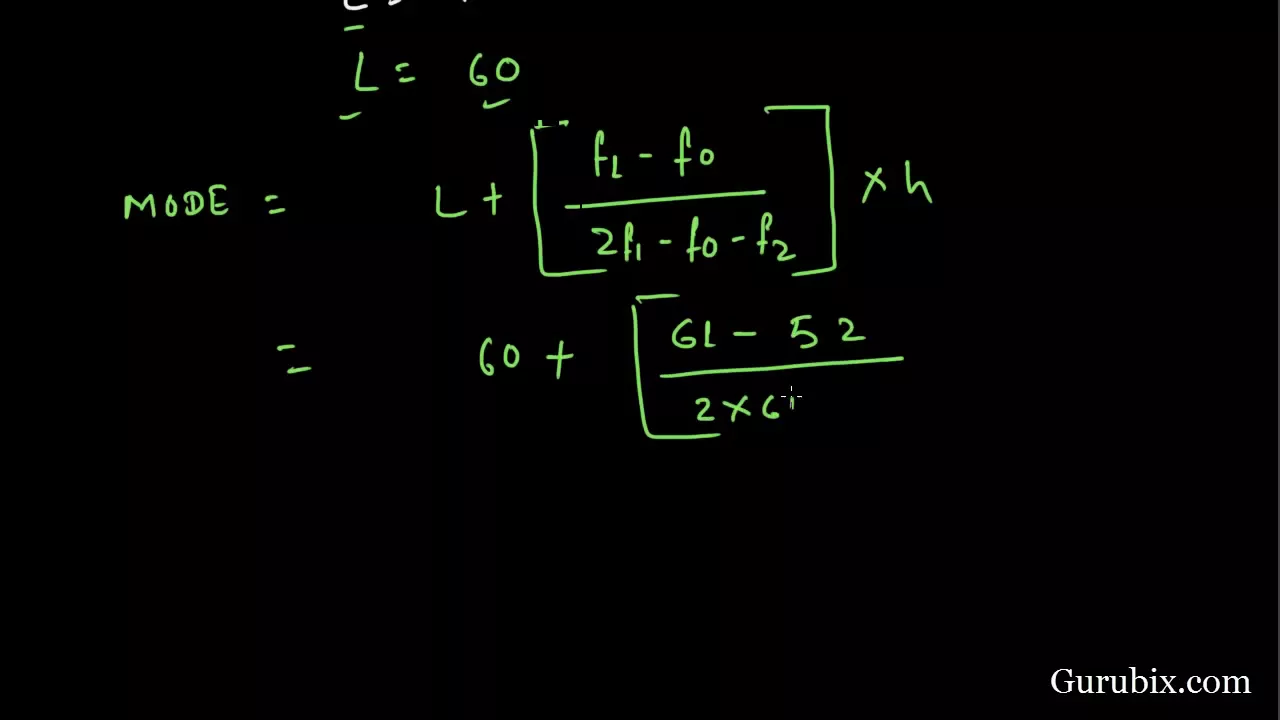 L = 60
MODE = L + [ f1 - f0
2f1 - f0 - f2 ] × h
= 60 + [ 61 - 52
2 × 61
Gurubix.com